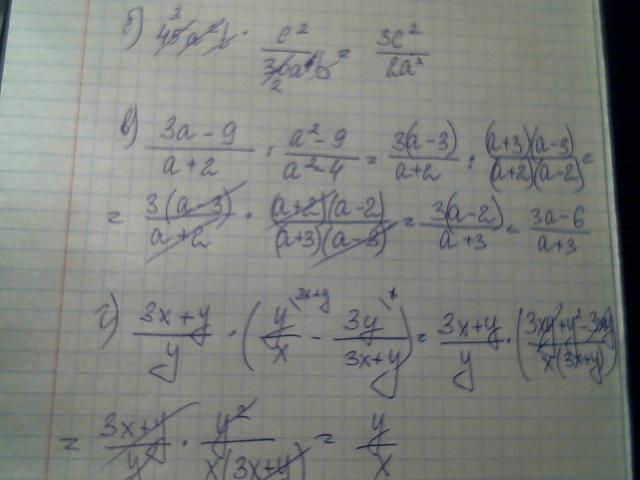 б) 45a²b · c²/30a⁴b = 3c²/2a²
в) (3a-9)/(a+2) : (a²-9)/(a²-4) = 3(a-3)/(a+2) : (a+3)(a-3)/(a+2)(a-2) =
= 3(a-3)/(a+2) · (a+2)(a-2)/(a+3)(a-3) = 3(a-2)/(a+3) = (3a-6)/(a+3)
г) (3x+y)/y · (y/x \3x+y - 3y/(3x+y) \x) = (3x+y)/y · ((3xy+y²-3xy)/x(3x+y))
= (3x+y)/y · y²/x(3x+y) = y/x